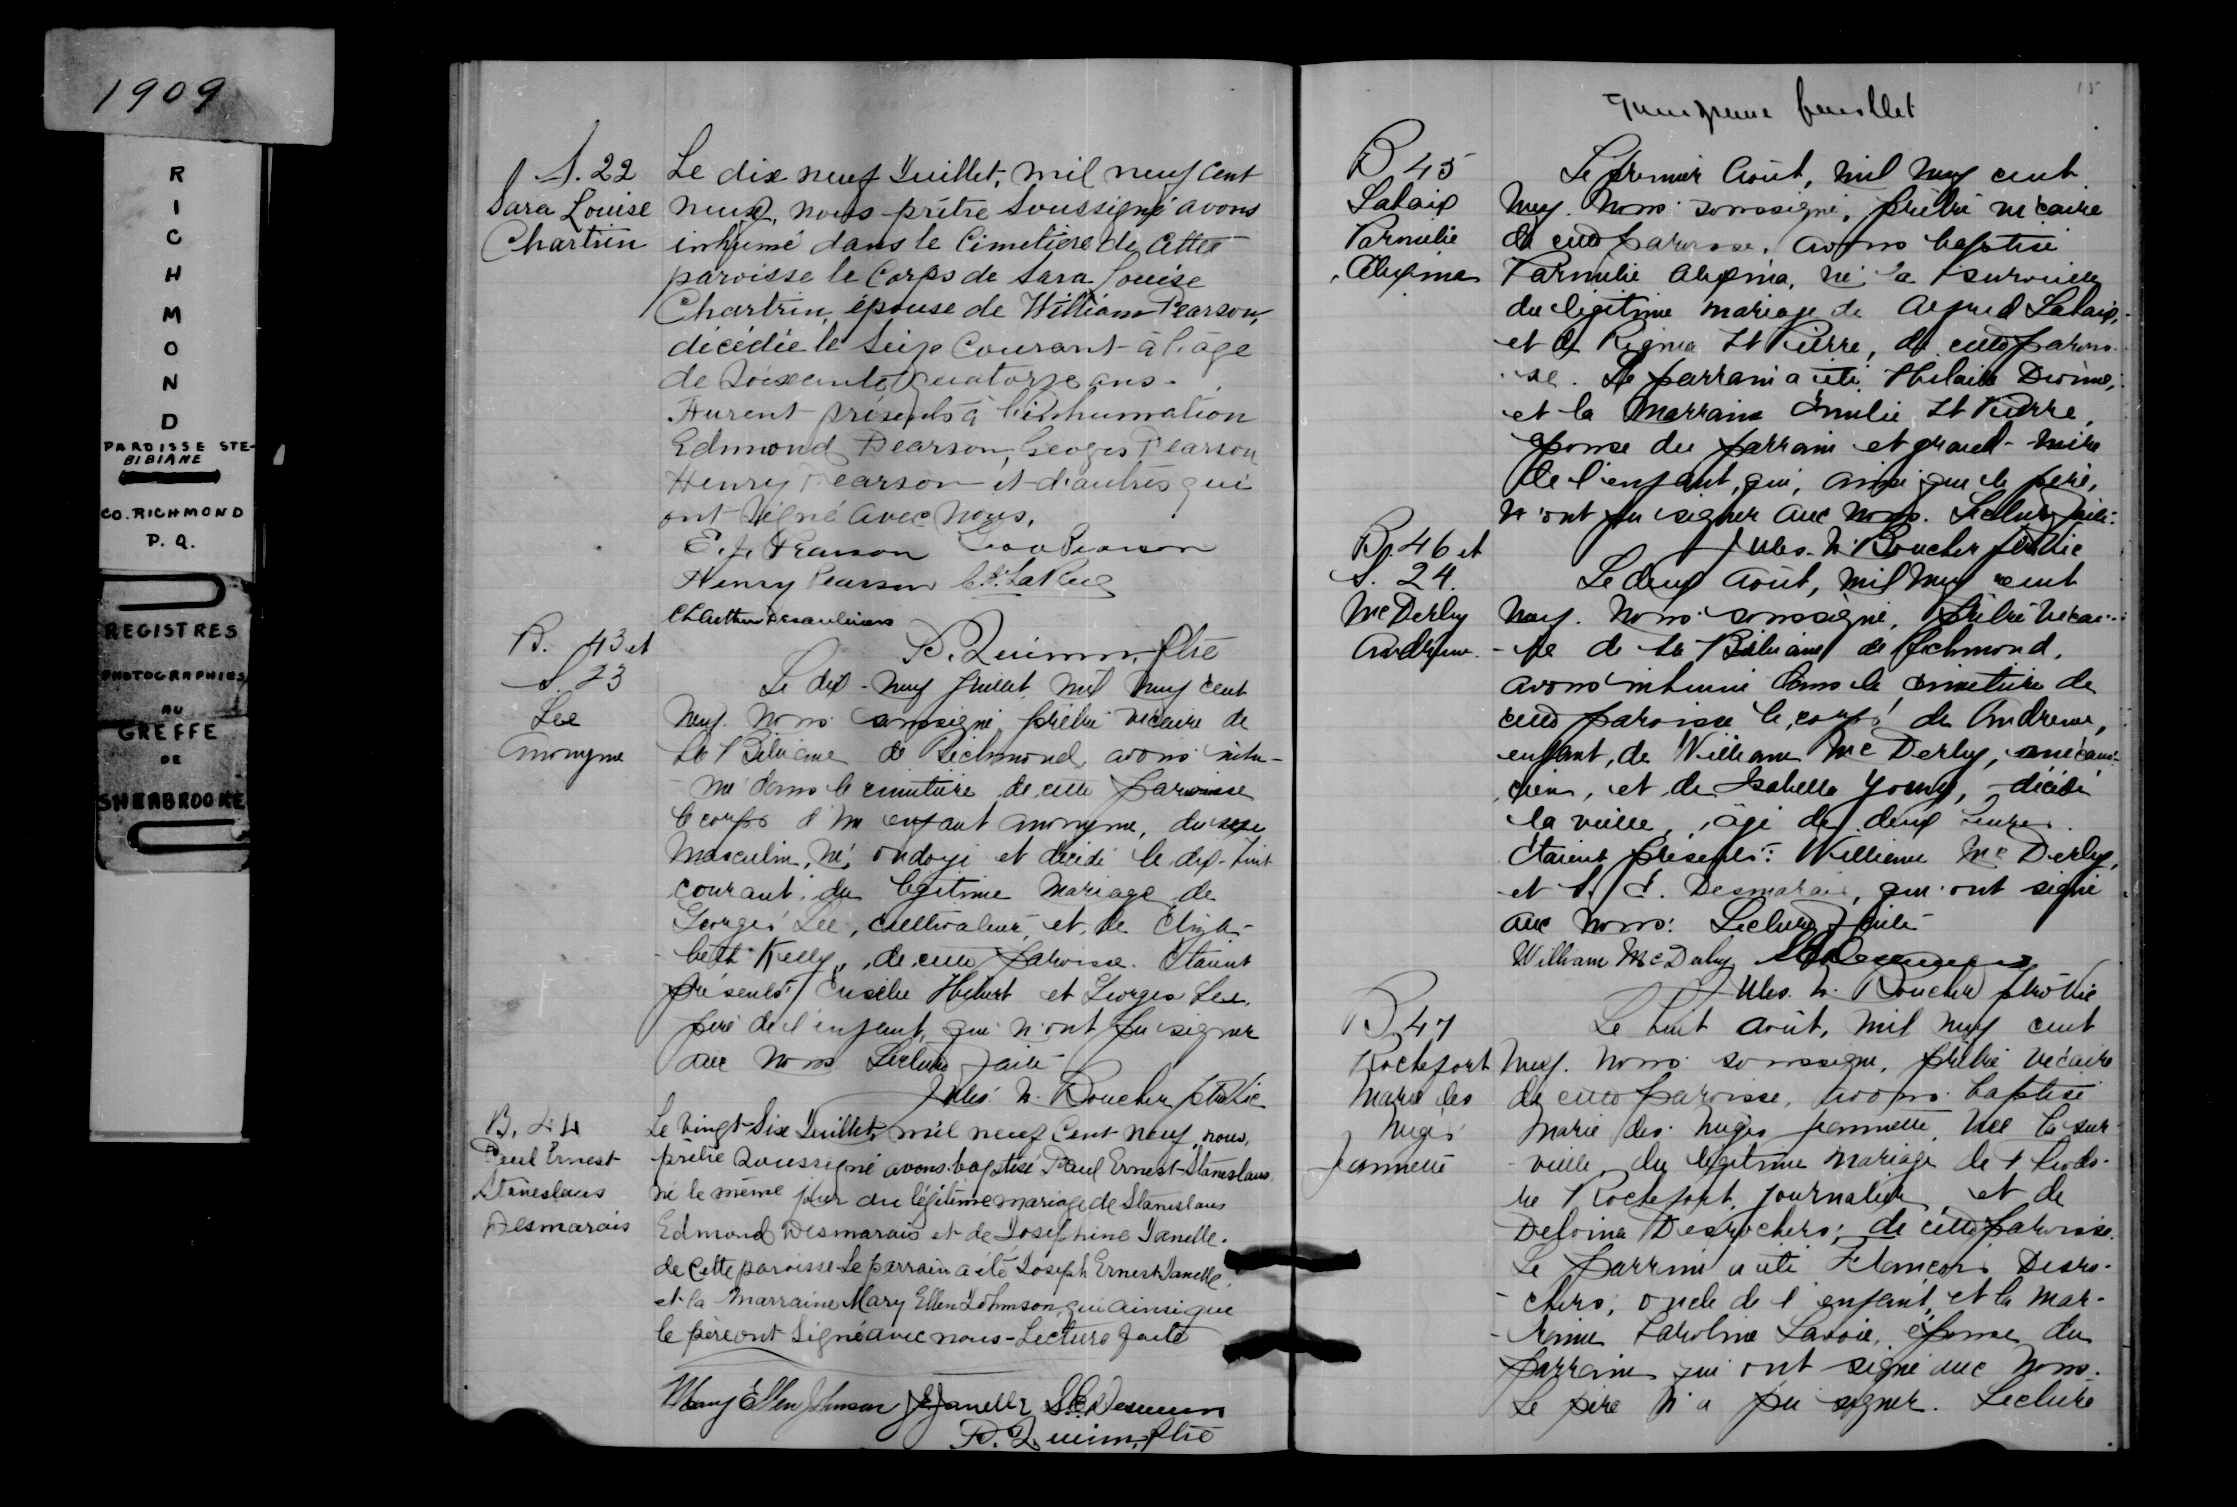 1909
RICHMOND
PAROISSE STE-
BIBIANE
CO. RICHMOND
P. Q.
REGISTRES
PHOTOGRAPHIES
AU
GREFFE
DE
SHERBROOKE
S. 22
Sara Louise
Chartrin
Le dix neuf Juillet, mil neuf cent
neuf, nous prêtre soussigné avons
inhumé dans le cimetière de cette
paroisse le corps de Sara Louise
Chartrin, épouse de William Pearson,
décédée le seize courant à l'âge
de soixante quatorze ans.
Furent présents à l'inhumation
Edmond Pearson, Georges Pearson
Henry Pearson et d'autres qui
ont signé avec nous.
E. J. Pearson Geo Pearson
Henry Pearson LaRue
Ch Arthur Desaulniers
P. Quinn, ptre
B. 43 et
S. 23
Lee
Anonyme
Le dix-neuf Juillet, mil neuf cent
neuf. Nous soussigné, prêtre vicaire de
Ste Bibiane de Richmond, avons inhu-
mé dans le cimetière de cette paroisse
le corps d'un enfant anonyme, du sexe
masculin, né, ondoyé et décédé le dix-huit
courant, du légitime mariage de
Georges Lee, cultivateur, et de Eliza-
beth Kelly, de cette paroisse. Etaient
présents Eusèbe Hébert et Georges Lee,
père de l'enfant, qui n'ont pu signer
avec nous. Lecture faite
Jules N. Boucher ptre Vic
B. 44
Paul Ernest
Stanislaus
Desmarais
Le vingt-six Juillet, mil neuf cent neuf, nous,
prêtre soussigné avons baptisé Paul Ernest Stanislaus
né le même jour du légitime mariage de Stanislaus
Edmond Desmarais et de Josephine Janelle.
de cette paroisse. Le parrain a été Joseph Ernest Janelle,
et la marraine Mary Ellen Johnson, qui ainsi que
le père ont signé avec nous - Lecture faite
Mary Ellen Johnson J E Janelle S. E. Desmarais
P. Quinn, ptre
15
quinzième feuillet
B 45
Labaix
Parmélie
Alexina
Le premier Août, mil neuf cent
neuf. Nous soussigné, prêtre vicaire
de cette paroisse, avons baptisé
Parmélie Alexina, née la surveille
du légitime mariage de Alfred Labaix,
et de Regina St Pierre, de cette parois-
se. Le parrain a été Hilaire Dionne,
et la marraine Emilie St Pierre,
épouse du parrain et grand-mère
de l'enfant, qui, ainsi que le père,
n'ont pu signer avec nous. Lecture faite.
Jules N. Boucher ptre Vic
B. 46 et
S. 24.
McDerby
Andrew.
Le deux Août, mil neuf cent
neuf. Nous soussigné, prêtre vicai-
re de Ste Bibiane de Richmond,
avons inhumé dans le cimetière de
cette paroisse le corps de Andrew,
enfant, de William McDerby, mécani-
cien, et de Isabella Young, décédé
la veille, âgé de deux heures.
Etaient présents: William McDerby,
et S. E. Desmarais, qui ont signé
avec nous. Lecture faite
William McDerby S E Desmarais
Jules. N. Boucher ptre Vic
B. 47
Rochefort
Marie des
Neiges
Jeannette
Le huit août, mil neuf cent
neuf. Nous soussigné, prêtre vicaire
de cette paroisse, avons baptisé
Marie des Neiges Jeannette, née la sur-
veille, du légitime mariage de Théodo-
re Rochefort, journalier, et de
Delvina Desrochers, de cette paroisse.
Le parrain a été François Desro-
chers, oncle de l'enfant, et la mar-
raine Caroline Savoie, épouse du
parrain qui ont signé avec nous.
Le père n'a pu signer. Lecture